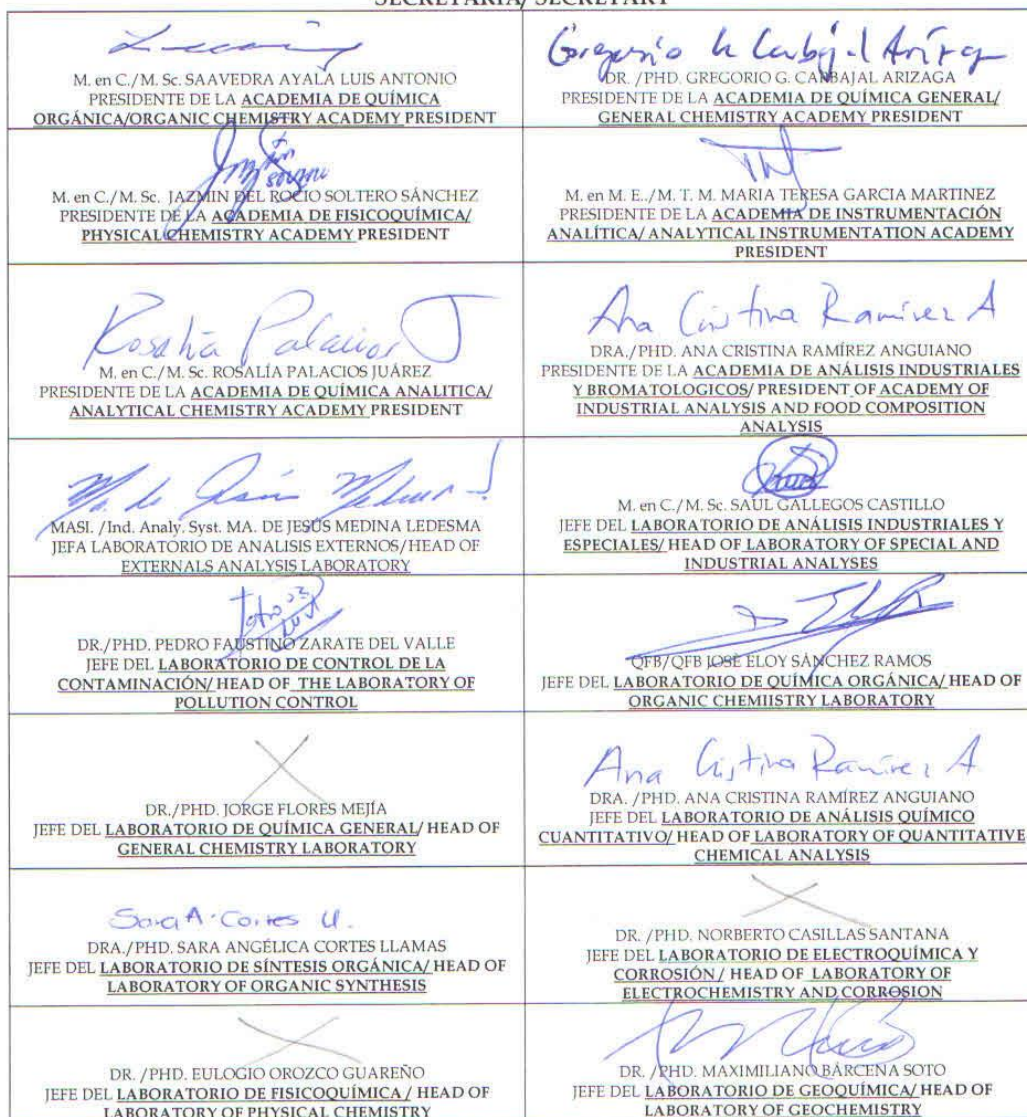 SECRETARIA/ SECRETARY
M. en C./M. Sc. SAAVEDRA AYALA LUIS ANTONIO
PRESIDENTE DE LA ACADEMIA DE QUÍMICA
ORGÁNICA/ORGANIC CHEMISTRY ACADEMY PRESIDENT
Gregorio G Carbajal Arízaga
DR. /PHD. GREGORIO G. CARBAJAL ARIZAGA
PRESIDENTE DE LA ACADEMIA DE QUÍMICA GENERAL/
GENERAL CHEMISTRY ACADEMY PRESIDENT
M. en C./M. Sc. JAZMIN DEL ROCIO SOLTERO SÁNCHEZ
PRESIDENTE DE LA ACADEMIA DE FISICOQUÍMICA/
PHYSICAL CHEMISTRY ACADEMY PRESIDENT
M. en M. E../M. T. M. MARIA TERESA GARCIA MARTINEZ
PRESIDENTE DE LA ACADEMIA DE INSTRUMENTACIÓN
ANALÍTICA/ ANALYTICAL INSTRUMENTATION ACADEMY
PRESIDENT
Rosalía Palacios J
M. en C./M. Sc. ROSALÍA PALACIOS JUÁREZ
PRESIDENTE DE LA ACADEMIA DE QUÍMICA ANALITICA/
ANALYTICAL CHEMISTRY ACADEMY PRESIDENT
Ana Cristina Ramírez A
DRA./PHD. ANA CRISTINA RAMÍREZ ANGUIANO
PRESIDENTE DE LA ACADEMIA DE ANÁLISIS INDUSTRIALES
Y BROMATOLOGICOS/ PRESIDENT OF ACADEMY OF
INDUSTRIAL ANALYSIS AND FOOD COMPOSITION
ANALYSIS
Ma. de Jesús Medina L
MASI. /Ind. Analy. Syst. MA. DE JESÚS MEDINA LEDESMA
JEFA LABORATORIO DE ANALISIS EXTERNOS/HEAD OF
EXTERNALS ANALYSIS LABORATORY
M. en C./M. Sc. SAUL GALLEGOS CASTILLO
JEFE DEL LABORATORIO DE ANÁLISIS INDUSTRIALES Y
ESPECIALES/ HEAD OF LABORATORY OF SPECIAL AND
INDUSTRIAL ANALYSES
DR./PHD. PEDRO FAUSTINO ZARATE DEL VALLE
JEFE DEL LABORATORIO DE CONTROL DE LA
CONTAMINACIÓN/ HEAD OF THE LABORATORY OF
POLLUTION CONTROL
QFB/QFB JOSÉ ELOY SÁNCHEZ RAMOS
JEFE DEL LABORATORIO DE QUÍMICA ORGÁNICA/ HEAD OF
ORGANIC CHEMIISTRY LABORATORY
DR./PHD. JORGE FLORES MEJÍA
JEFE DEL LABORATORIO DE QUÍMICA GENERAL/ HEAD OF
GENERAL CHEMISTRY LABORATORY
Ana Cristina Ramírez A
DRA. /PHD. ANA CRISTINA RAMÍREZ ANGUIANO
JEFE DEL LABORATORIO DE ANÁLISIS QUÍMICO
CUANTITATIVO/ HEAD OF LABORATORY OF QUANTITATIVE
CHEMICAL ANALYSIS
Sara A. Cortes Ll.
DRA./PHD. SARA ANGÉLICA CORTES LLAMAS
JEFE DEL LABORATORIO DE SÍNTESIS ORGÁNICA/ HEAD OF
LABORATORY OF ORGANIC SYNTHESIS
DR. /PHD. NORBERTO CASILLAS SANTANA
JEFE DEL LABORATORIO DE ELECTROQUÍMICA Y
CORROSIÓN / HEAD OF LABORATORY OF
ELECTROCHEMISTRY AND CORROSION
DR. /PHD. EULOGIO OROZCO GUAREÑO
JEFE DEL LABORATORIO DE FISICOQUÍMICA / HEAD OF
LABORATORY OF PHYSICAL CHEMISTRY
DR. /PHD. MAXIMILIANO BÁRCENA SOTO
JEFE DEL LABORATORIO DE GEOQUÍMICA/ HEAD OF
LABORATORY OF GEOCHEMISTRY